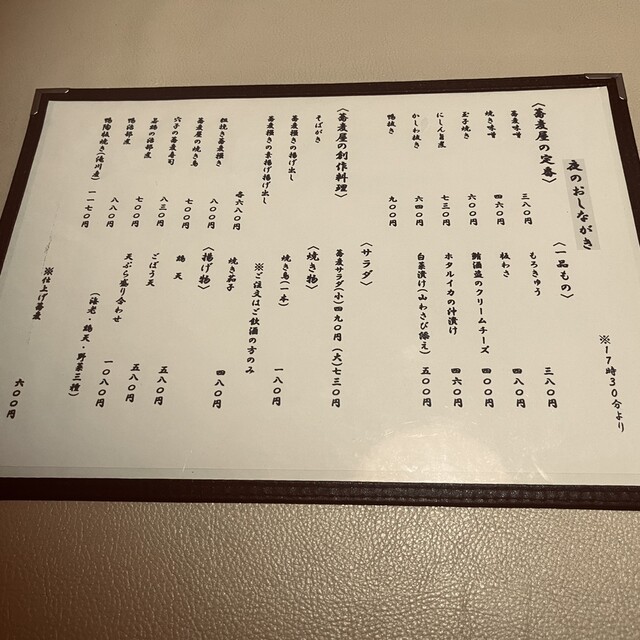 ※17時30分より
夜のおしながき
〈蕎麦屋の定番〉
蕎麦味噌 三八〇円
焼き味噌 四六〇円
玉子焼き 六〇〇円
にしん旨煮 七三〇円
かしわ抜き 六四〇円
鴨抜き 九〇〇円
〈蕎麦屋の創作料理〉
そばがき
蕎麦掻きの揚げ出し
蕎麦掻きの素揚げ揚げ出し
各六八〇円
粗挽き蕎麦掻き 八〇〇円
蕎麦屋の焼き鳥 七〇〇円
穴子の蕎麦寿司 八三〇円
若鶏の治部煮 七〇〇円
鴨治部煮 八八〇円
鴨陶板焼き(滝川産) 一一七〇円
〈一品もの〉
もろきゅう 三八〇円
板わさ 四八〇円
鮪酒盗のクリームチーズ 四〇〇円
ホタルイカの汁漬け 四六〇円
白菜漬け(山わさび添え) 五〇〇円
〈サラダ〉
蕎麦サラダ(小)四九〇円 (大)七三〇円
〈焼き物〉
焼き鳥(一本) 一八〇円
※ご注文はご飲酒の方のみ
焼き茄子 四八〇円
〈揚げ物〉
鶏天 五八〇円
ごぼう天 五八〇円
天ぷら盛り合わせ 一〇八〇円
(海老・鶏天・野菜三種)
※仕上げ蕎麦 六〇〇円